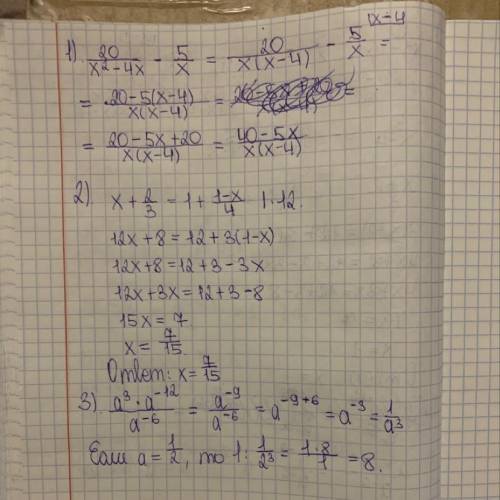 1) 20/(x²-4x) - 5/x = 20/(x(x-4)) - 5/x |x-4 =
= (20-5(x-4))/(x(x-4)) = =
= (20-5x+20)/(x(x-4)) = (40-5x)/(x(x-4))
2) x + 2/3 = 1 + (1-x)/4 |·12
12x + 8 = 12 + 3(1-x)
12x+8 = 12+3-3x
12x+3x = 12+3-8
15x = 7
x = 7/15
Ответ: x = 7/15
3) (a³·a⁻¹²)/a⁻⁶ = a⁻⁹/a⁻⁶ = a⁻⁹⁺⁶ = a⁻³ = 1/a³
Если a = 1/2, то 1 : 1/2³ = (1·8)/1 = 8.